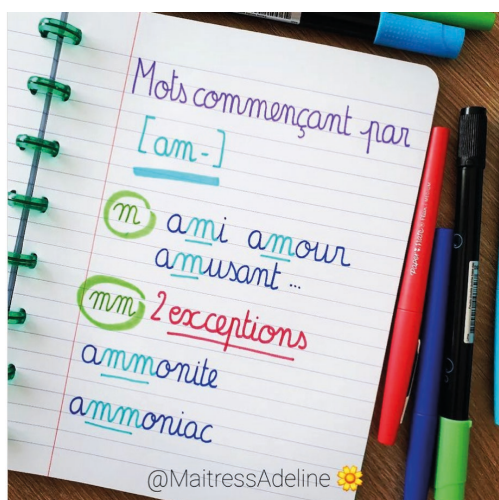 Mots commençant par
[am-]
m ami amour
amusant ...
mm 2 exceptions
ammonite
ammoniac
@MaitressAdeline 🌼